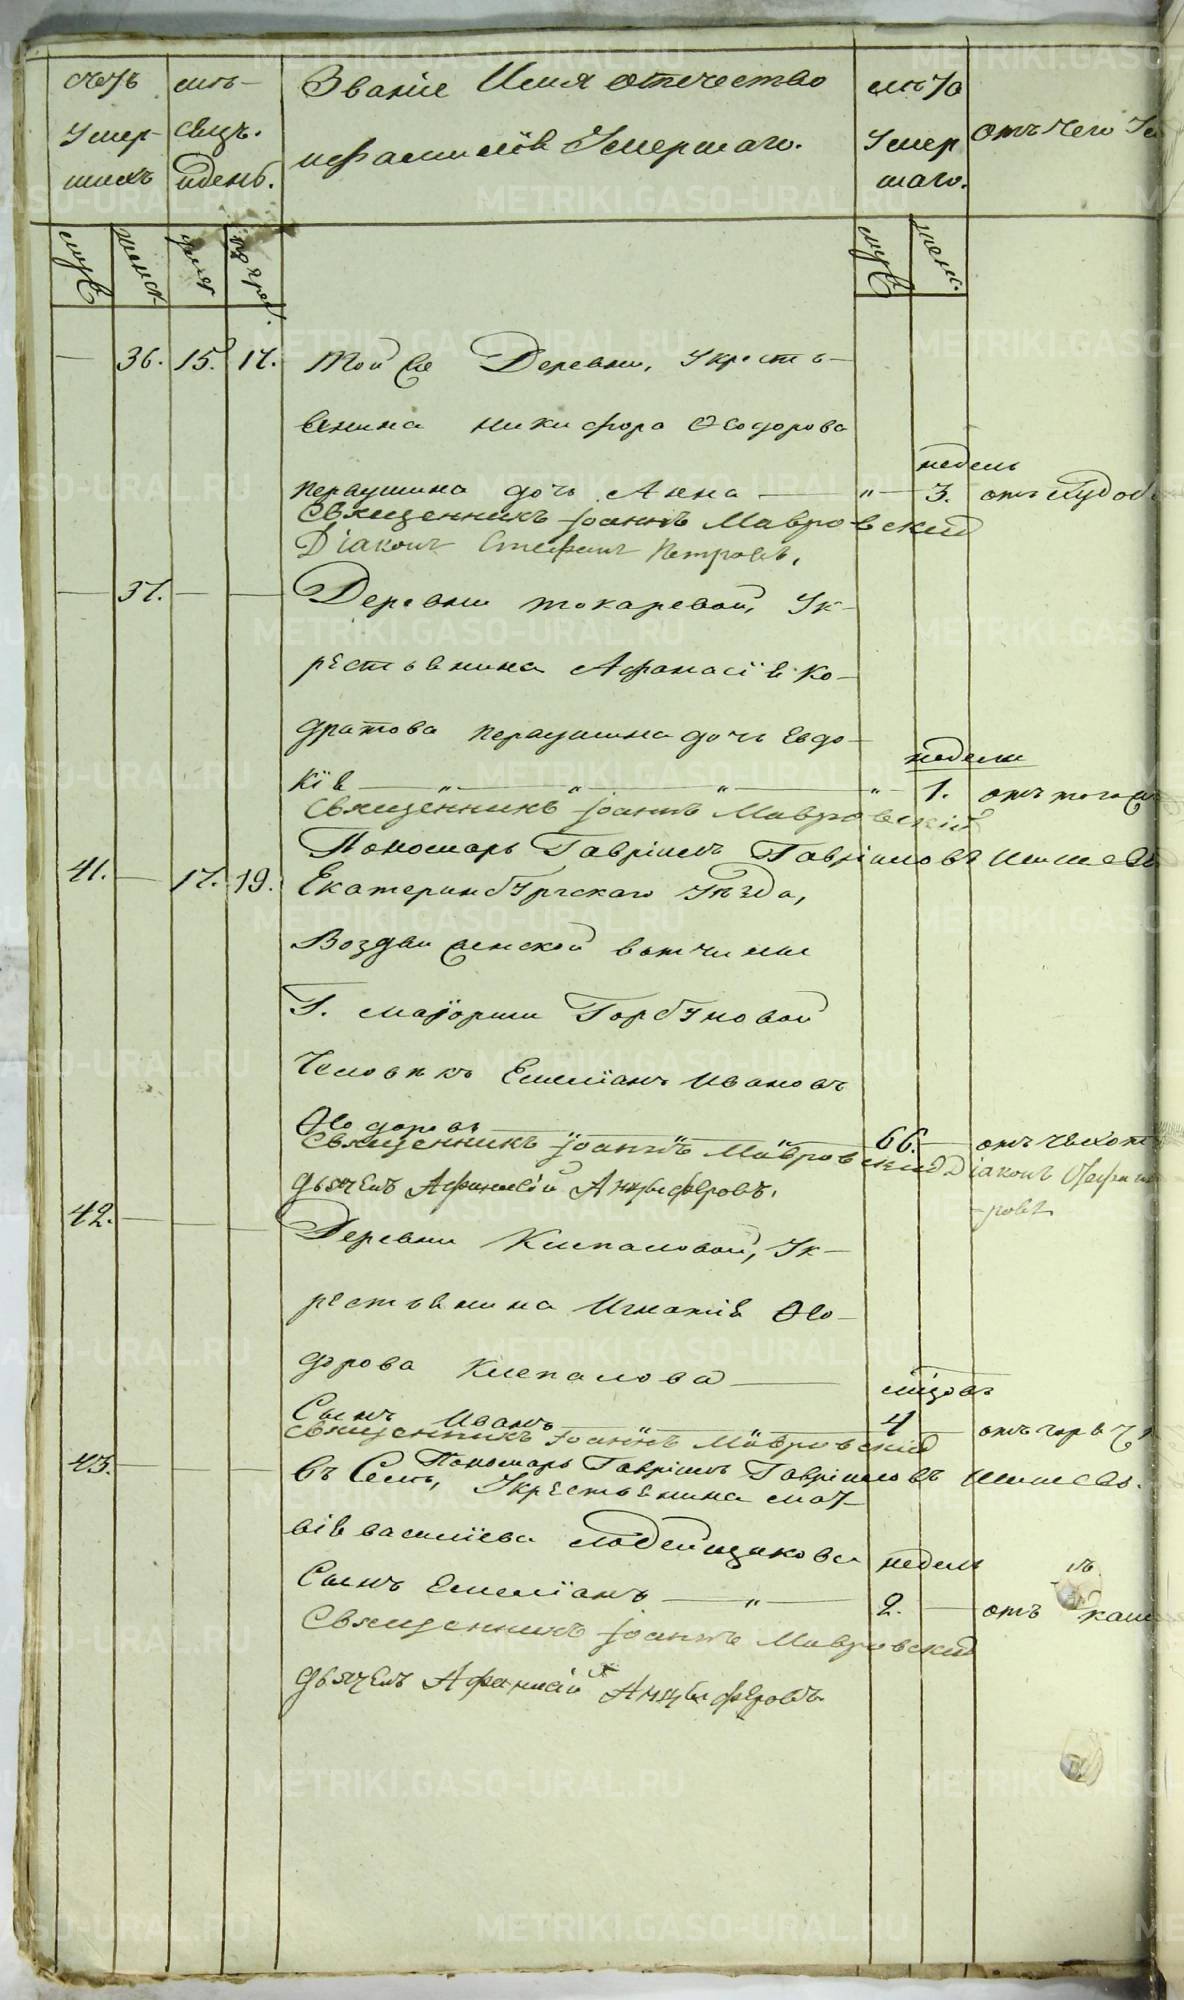 Счетъ
Умер-
шихъ
мѣ-
сяцъ.
и день.
Званіе Имя отечество
и фамилія Умершаго.
лѣта
Умер
шаго.
Отъ чего
муж
женск
умер
погреб.
муж
женс.
36. 15. 17. Той же Деревни, У кресть-
янина Никифора Ѳеодорова
недель
Первушина дочь Анна — „ — 3. отъ
Священникъ Іоаннъ Мавровскій
Діаконъ Стефанъ Петровъ.
37. Деревни Токаревой, У к-
рестьянина Афанасія Ко-
дратова Первушина дочь Евдо-
недели
кія „ „ „ „ 1. отъ того
Священникъ Іоаннъ Мавровскій
Пономарь Гавріилъ Гавріиловъ
41. 17. 19. Екатеринбургскаго Уѣзда,
Воздвиженской вотчины
Г. маіорши Горбуновой
Человѣкъ Емеліанъ Ивановъ
Ѳеодоровъ „ „ „ 66. отъ
Священникъ Іоаннъ Мавровскій Діаконъ Стефанъ
дьячекъ Афанасій Анцыферовъ.
-ровъ
42. Деревни Клепаловой, У к-
рестьянина Игнатія Ѳео-
дорова Клепалова
Сынъ Иванъ „ 4 отъ
Священникъ Іоаннъ Мавровскій
Пономарь Гавріилъ Гавріиловъ
43. въ Селѣ, У крестьянина Мат-
вія Василіева Лодейщикова недель
Сынъ Емеліанъ „ 2. отъ
Священникъ Іоаннъ Мавровскій
дьячекъ Афанасій Анцыферовъ
METRIKI.GASO-URAL.RU